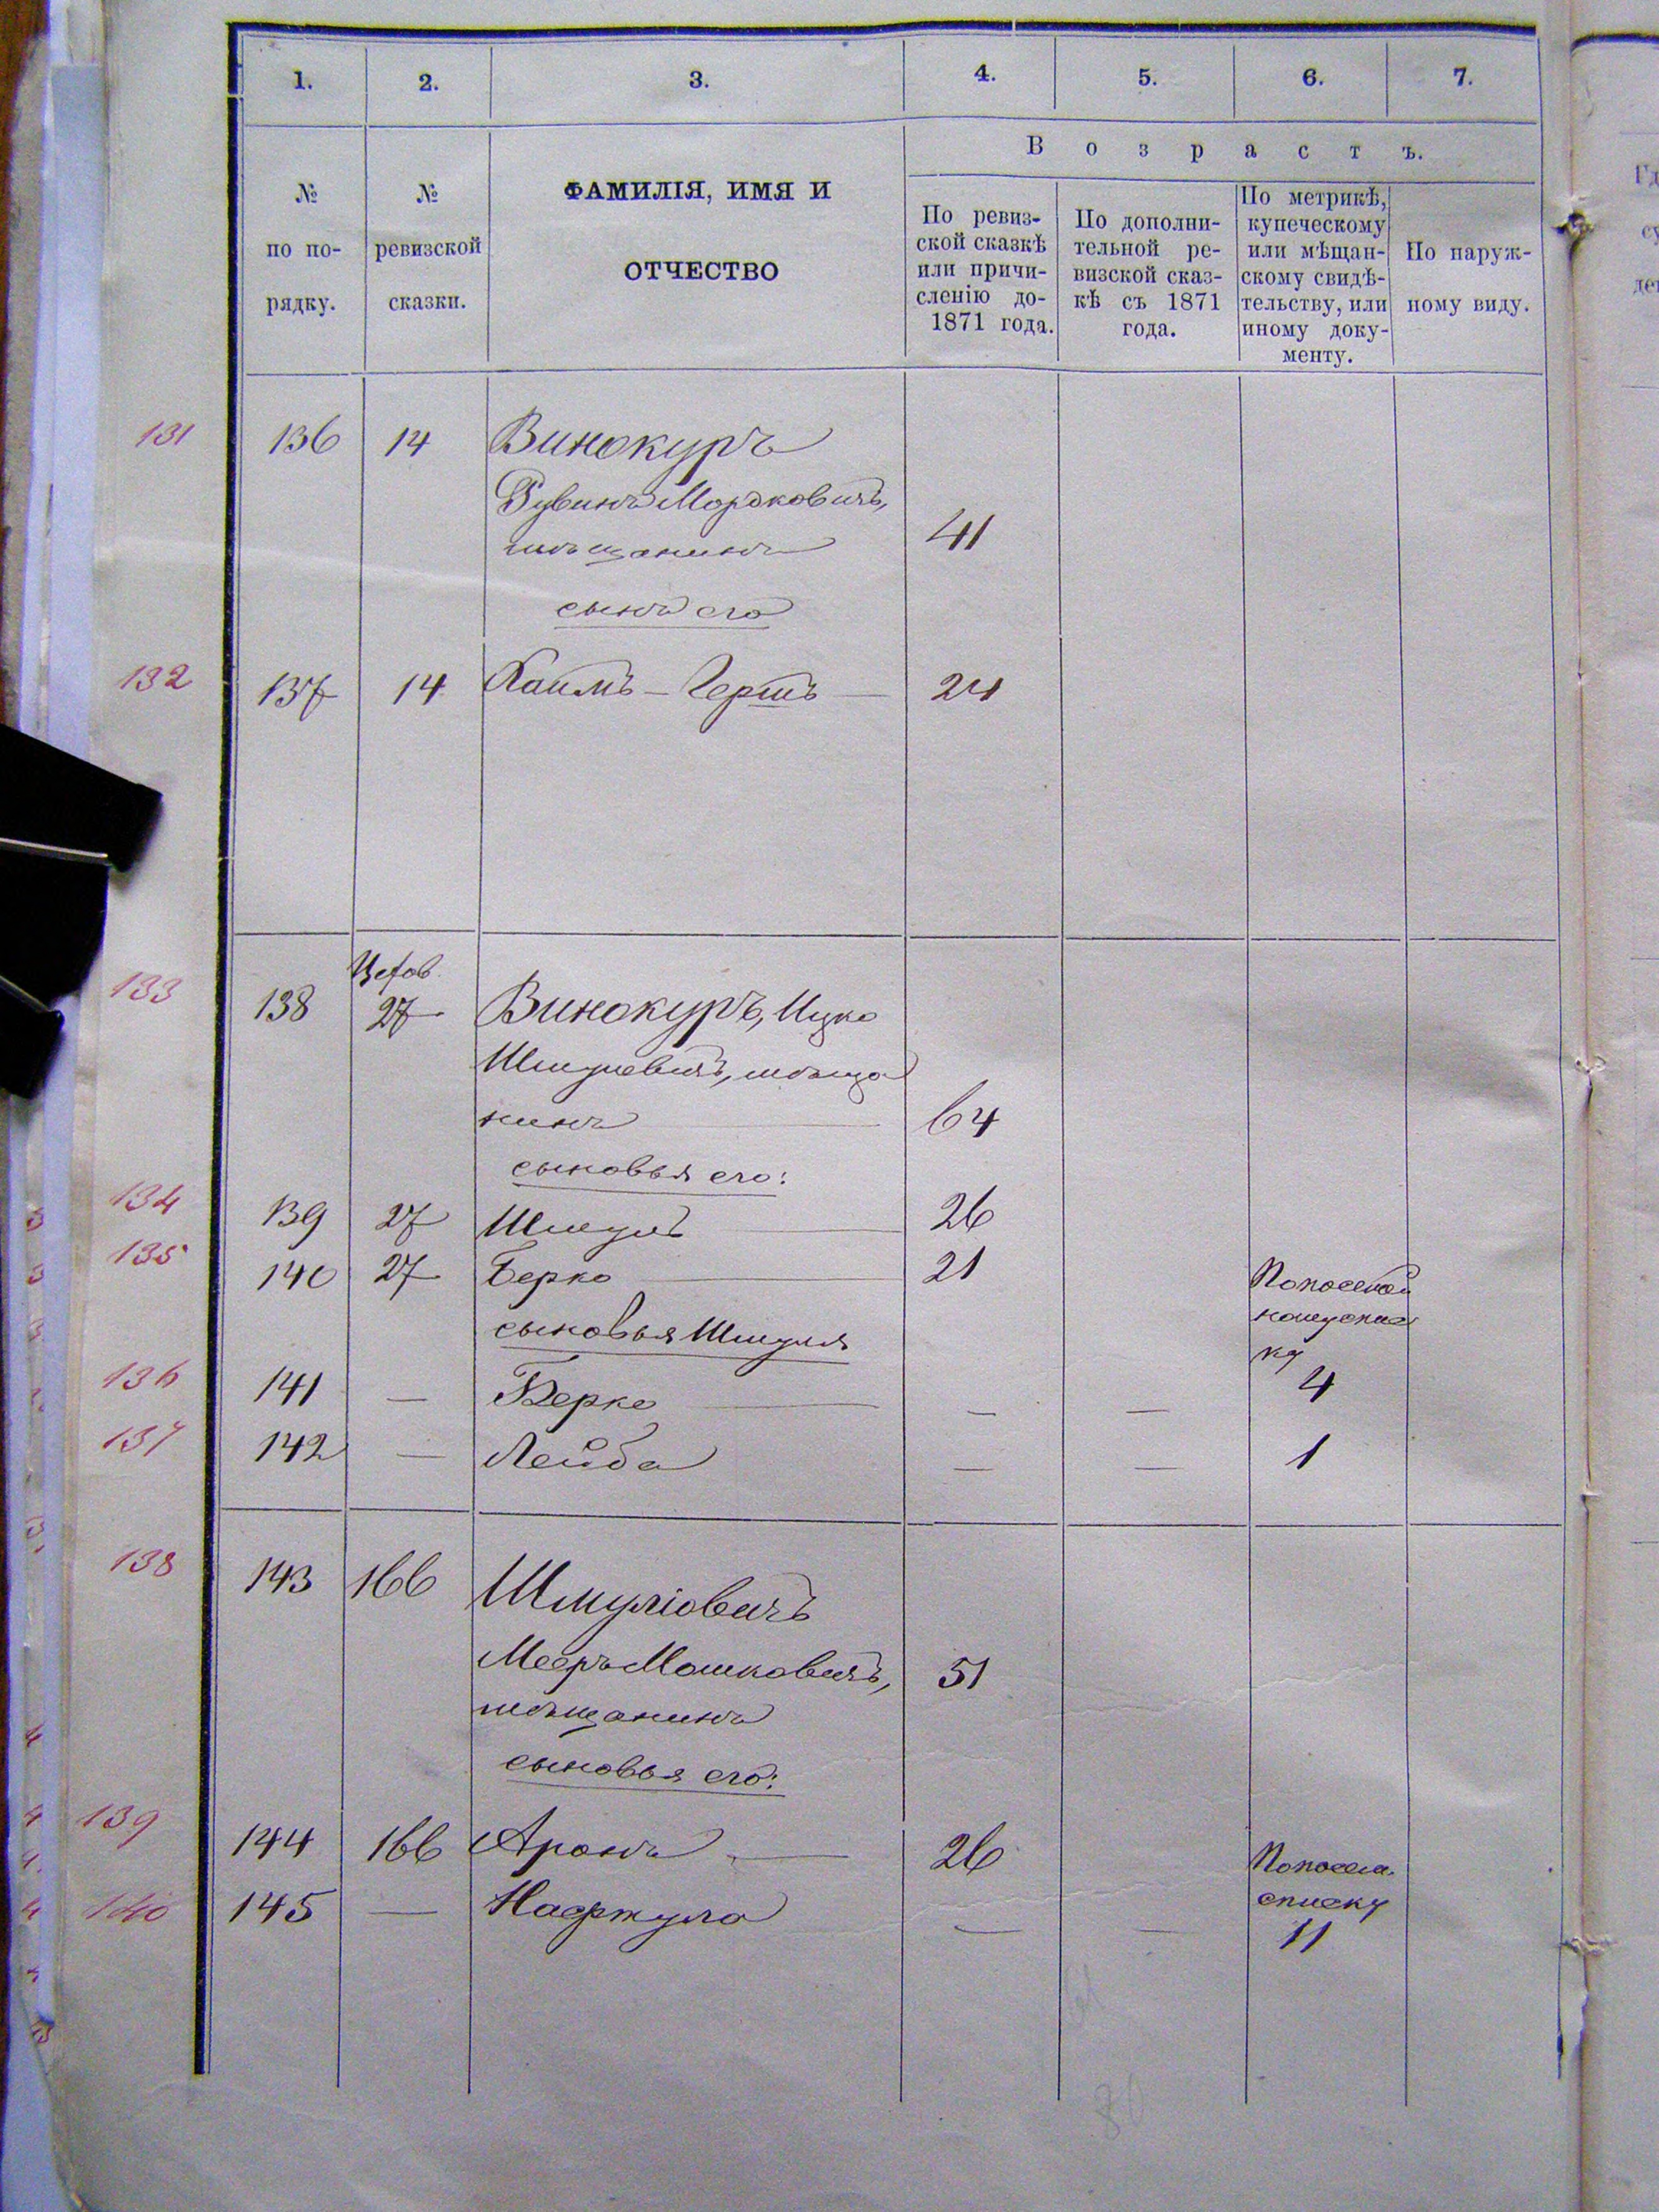 1. 2. 3. 4. 5. 6. 7.
Возрастъ.
№ по по-рядку.
№ ревизской сказки.
ФАМИЛІЯ, ИМЯ И
ОТЧЕСТВО
По ревиз-
ской сказкѣ
или причи-
сленію до
1871 года.
По дополни-
тельной ре-
визской сказ-
кѣ съ 1871
года.
По метрикѣ,
купеческому
или мѣщан-
скому свидѣ-
тельству, или
иному доку-
менту.
По наруж-
ному виду.
131 136 14 Винокуръ
Рувинъ Мордковичъ,
мѣщанинъ 41
сынъ его
132 137 14 Хаимъ-Гершъ 24
133 138 27 Винокуръ, Ицко
Шмулевичъ, мѣща
нинъ 64
сыновья его:
134 139 27 Шмуль 26
135 140 27 Берко 21
сыновья Шмуля
136 141 — Берко — — 4
137 142 — Лейба — — 1
138 143 166 Шмуліовичъ
Мееръ Мошковичъ, 51
мѣщанинъ
сыновья его:
139 144 166 Аронъ 26
списку
140 145 — — — 11